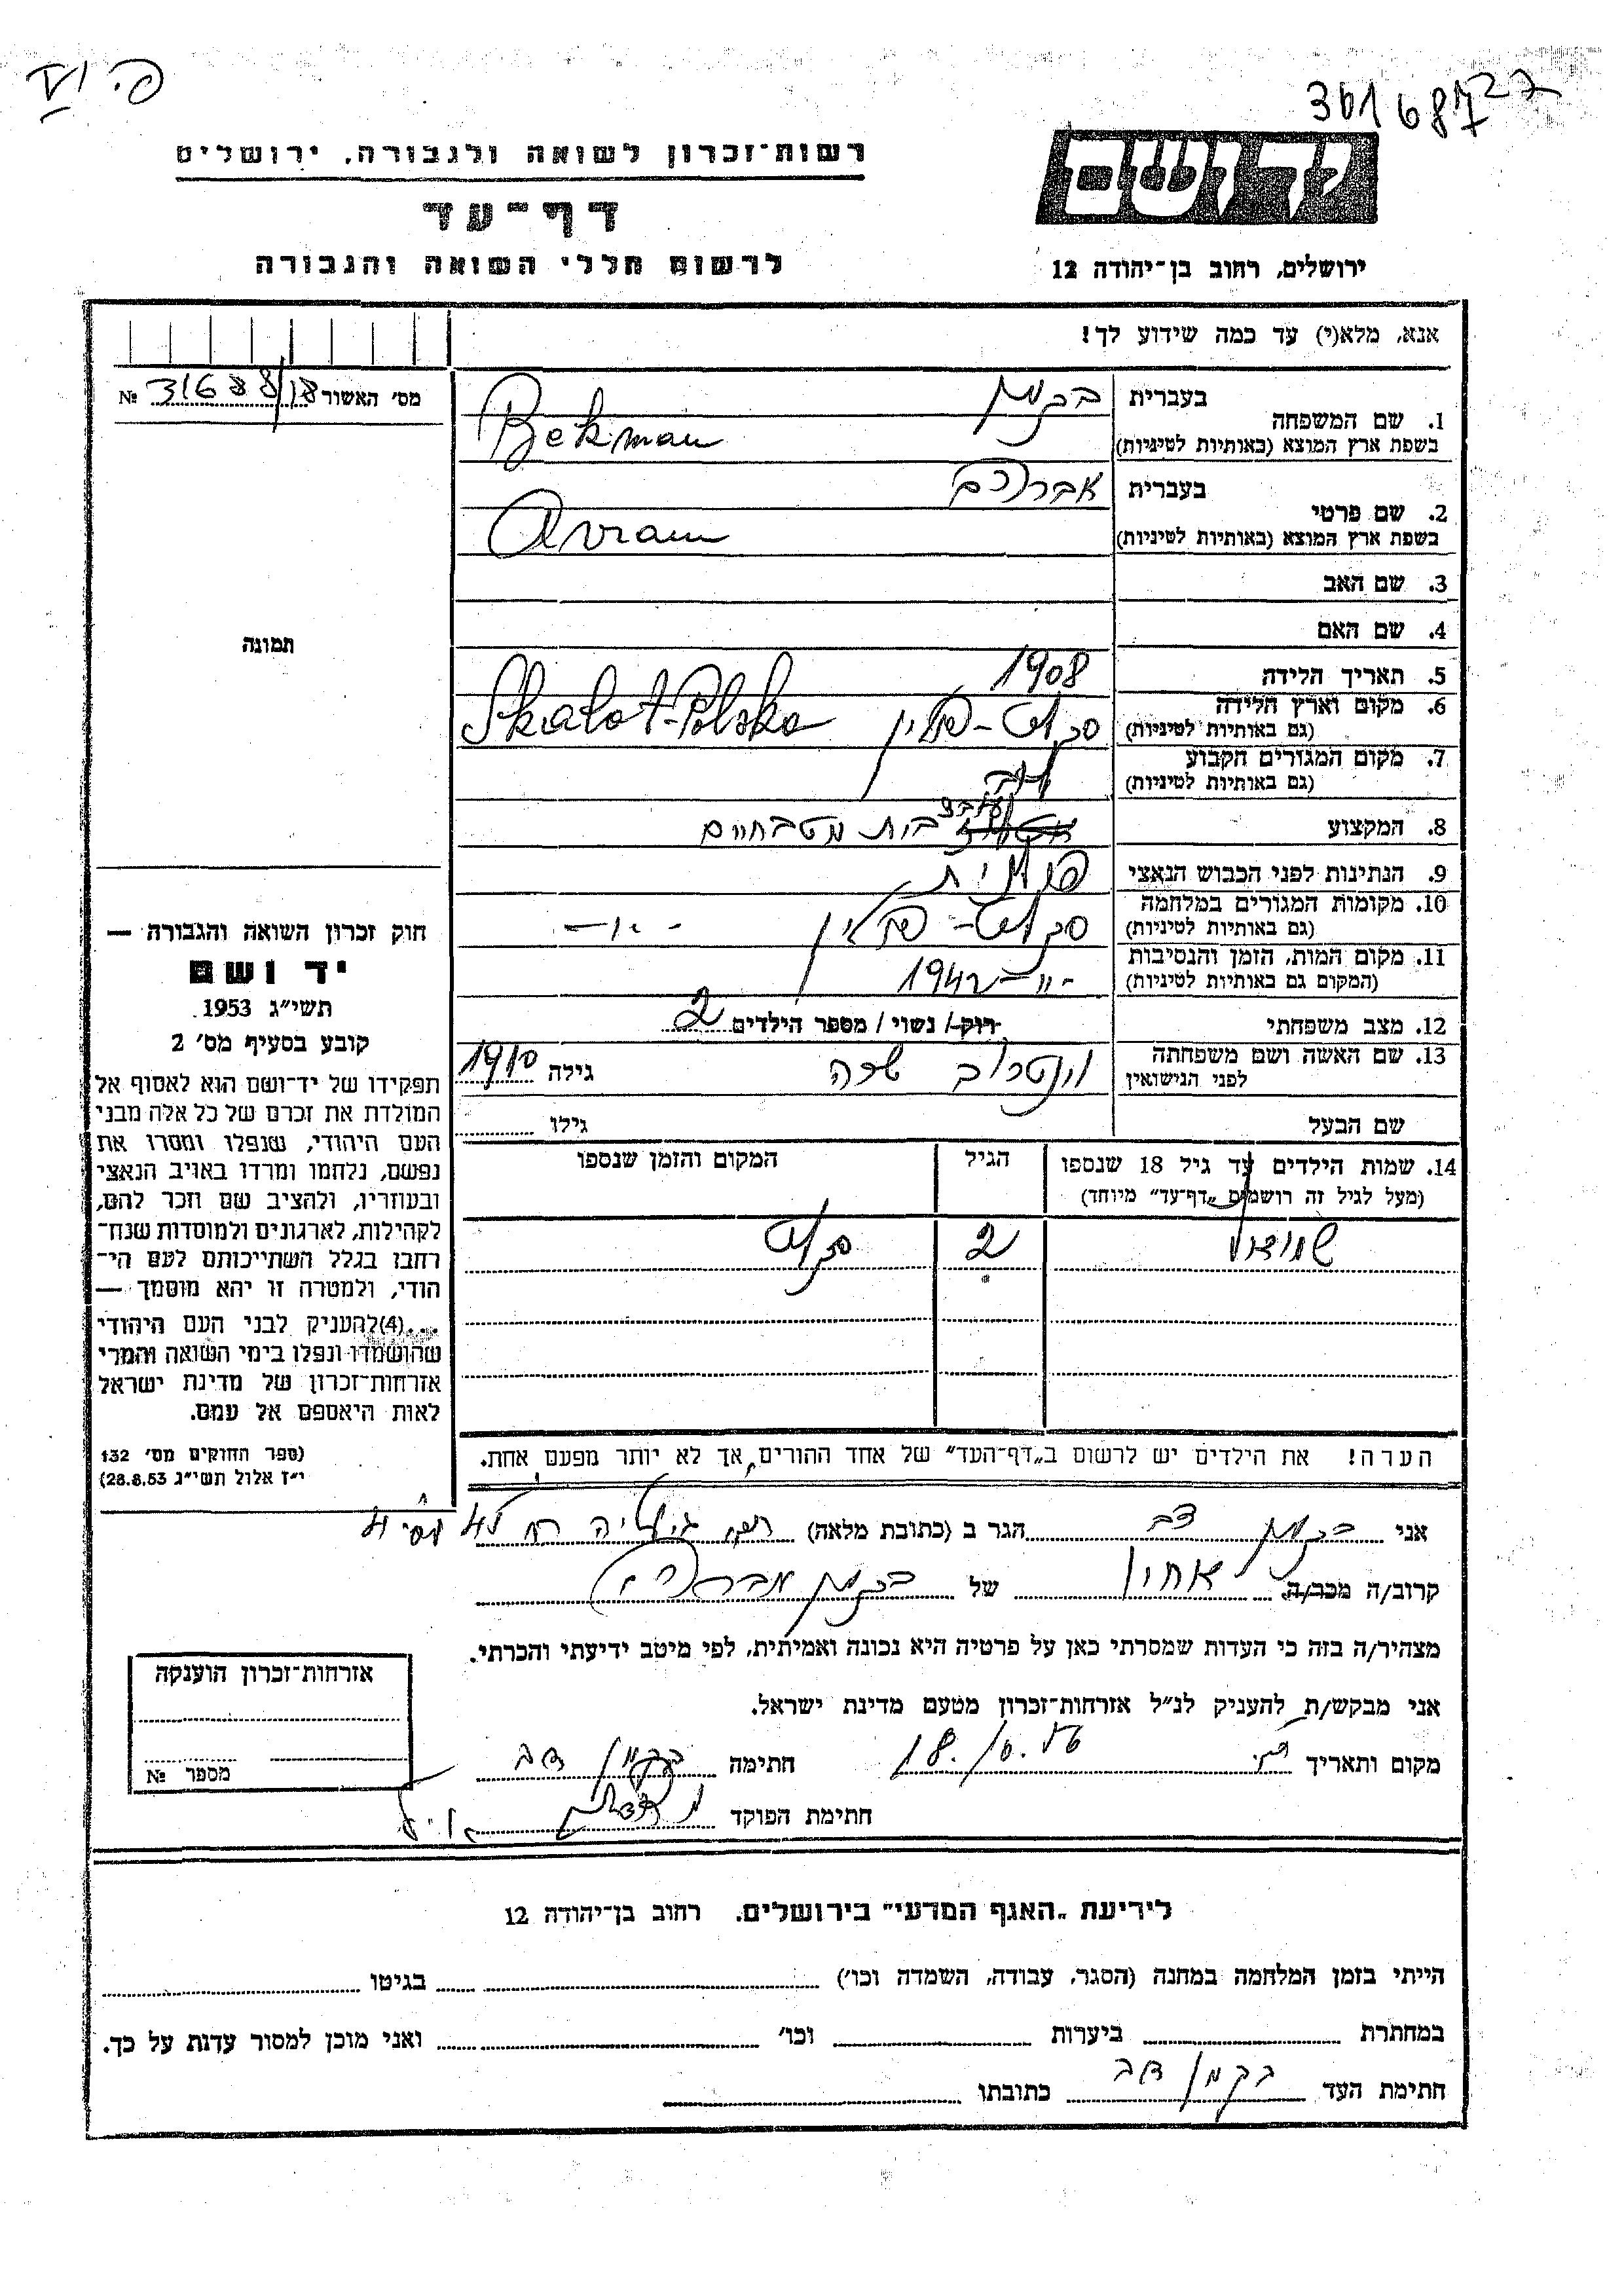 רשות־זכרון לשואה ולגבורה, ירושלים
דף־עד
לרשום חללי השואה והגבורה
יד ושם
ירושלים, רחוב בן־יהודה 12
אנא, מלא(י) עד כמה שידוע לך!
מס׳ האשור 31688/18 №
1. שם המשפחה
בעברית בקמן
בשפת ארץ המוצא (באותיות לטיניות) Bekman
2. שם פרטי
בעברית אברהם
בשפת ארץ המוצא (באותיות לטיניות) Avram
3. שם האב
4. שם האם
5. תאריך הלידה 1908
6. מקום וארץ הלידה סקלט-פולין Skalat-Polska
(גם באותיות לטיניות)
7. מקום המגורים הקבוע
(גם באותיות לטיניות)
8. המקצוע בית מטבחיים
9. הנתינות לפני הכבוש הנאצי פולנית
10. מקומות המגורים במלחמה סקלט-פולין -"-
(גם באותיות לטיניות)
11. מקום המות, הזמן והנסיבות -"- 1942
(המקום גם באותיות לטיניות)
12. מצב משפחתי רוק / נשוי / מספר הילדים 2
13. שם האשה ושם משפחתה וינטרוב שרה גילה 1910
לפני הנישואין
שם הבעל גילו
14. שמות הילדים עד גיל 18 שנספו הגיל המקום והזמן שנספו
(מעל לגיל זה רושמים „דף־עד״ מיוחד)
2 סקלט
הערה! את הילדים יש לרשום ב„דף־העד״ של אחד ההורים, אך לא יותר מפעם אחת.
תמונה
חוק זכרון השואה והגבורה —
יד ושם
תשי״ג 1953
קובע בסעיף מס׳ 2
תפקידו של יד־ושם הוא לאסוף אל
המולדת את זכרם של כל אלה מבני
העם היהודי, שנפלו ומסרו את
נפשם, נלחמו ומרדו באויב הנאצי
ובעוזריו, ולהציב שם וזכר להם,
לקהילות, לארגונים ולמוסדות שנח־
רחבו בגלל השתייכותם לעם הי־
הודי, ולמטרה זו יהא מוסמך —
...(4)להעניק לבני העם היהודי
שהושמדו ונפלו בימי השואה והמרי
אזרחות־זכרון של מדינת ישראל
לאות היאספם אל עמם.
(ספר החוקים מס׳ 132
י״ז אלול תשי״ג 28.8.53)
אני בקמן דב הגר ב (כתובת מלאה)
קרוב/ה מכר/ה אחיו של בקמן אברהם
מצהיר/ה בזה כי העדות שמסרתי כאן על פרטיה היא נכונה ואמיתית, לפי מיטב ידיעתי והכרתי.
אני מבקש/ת להעניק לנ״ל אזרחות־זכרון מטעם מדינת ישראל.
מקום ותאריך 18. חתימה בקמן דב
חתימת הפוקד
אזרחות־זכרון הוענקה
מספר №
לידיעת „האגף המדעי״ בירושלים. רחוב בן־יהודה 12
הייתי בזמן המלחמה במחנה (הסגר, עבודה, השמדה וכו׳) בגיטו
במחתרת ביערות וכו׳ ואני מוכן למסור עדות על כך.
חתימת העד בקמן דב כתובתו